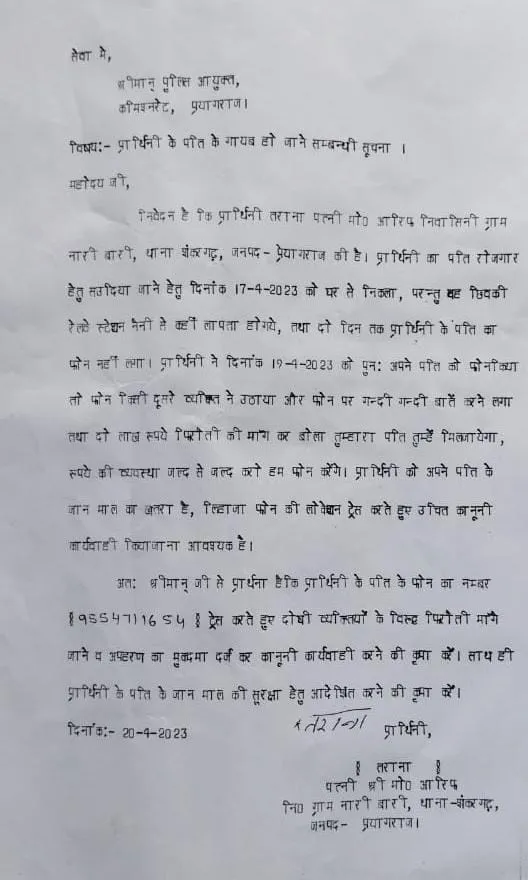 सेवा मे,
श्रीमान् पुलिस आयुक्त,
कमिश्नरेट, प्रयागराज।
विषय:- प्रार्थिनी के पति के गायब हो जाने सम्बन्धी सूचना ।
महोदय जी,
निवेदन है कि प्रार्थिनी तराना पत्नी मो0 आरिफ निवासिनी ग्राम
नारी बारी, थाना शंकरगढ़, जनपद- प्रेयागराज की है। प्रार्थिनी का पति रोजगार
हेतु सउदिया जाने हेतु दिनांक 17-4-2023 को घर से निकला, परन्तु वह छिवकी
रेलवे स्टेशन नैनी से कहीं लापता होगये, तथा दो दिन तक प्रार्थिनी के पति का
फोन नहीं लगा। प्रार्थिनी ने दिनांक 19-4-2023 को पुन: अपने पति को फोनकिया
तो फोन किसी दूसरे व्यक्ति ने उठाया और फोन पर गन्दी गन्दी बातें करने लगा
तथा दो लाख रूपये फिरौती की मांग कर बोला तुम्हारा पति तुम्हें मिलजायेगा,
रूपये की व्यवस्था जल्द से जल्द करो हम फोन करेंगे। प्रार्थिनी को अपने पति के
जान माल का खतरा है, लिहाजा फोन की लोकेशन ट्रेस करते हुए उचित कानूनी
कार्यवाही कियाजाना आवश्यक है।
अत: श्रीमान् जी से प्रार्थना हैकि प्रार्थिनी के पति के फोन का नम्बर
§ 9554711654 § ट्रेस करते हुए दोषी व्यक्तियों के विरूद्ध फिरौती मांगे
जाने व अपहरण का मुकदमा दर्ज कर कानूनी कार्यवाही करने की कृपा करें। साथ ही
प्रार्थिनी के पति के जान माल की सुरक्षा हेतु आदेशित करने की कृपा करें।
दिनांक:- 20-4-2023
तराना
प्रार्थिनी,
§ तराना §
पत्नी श्री मो0 आरिफ
नि0 ग्राम नारी बारी, थाना-शंकरगढ़,
जनपद- प्रयागराज।